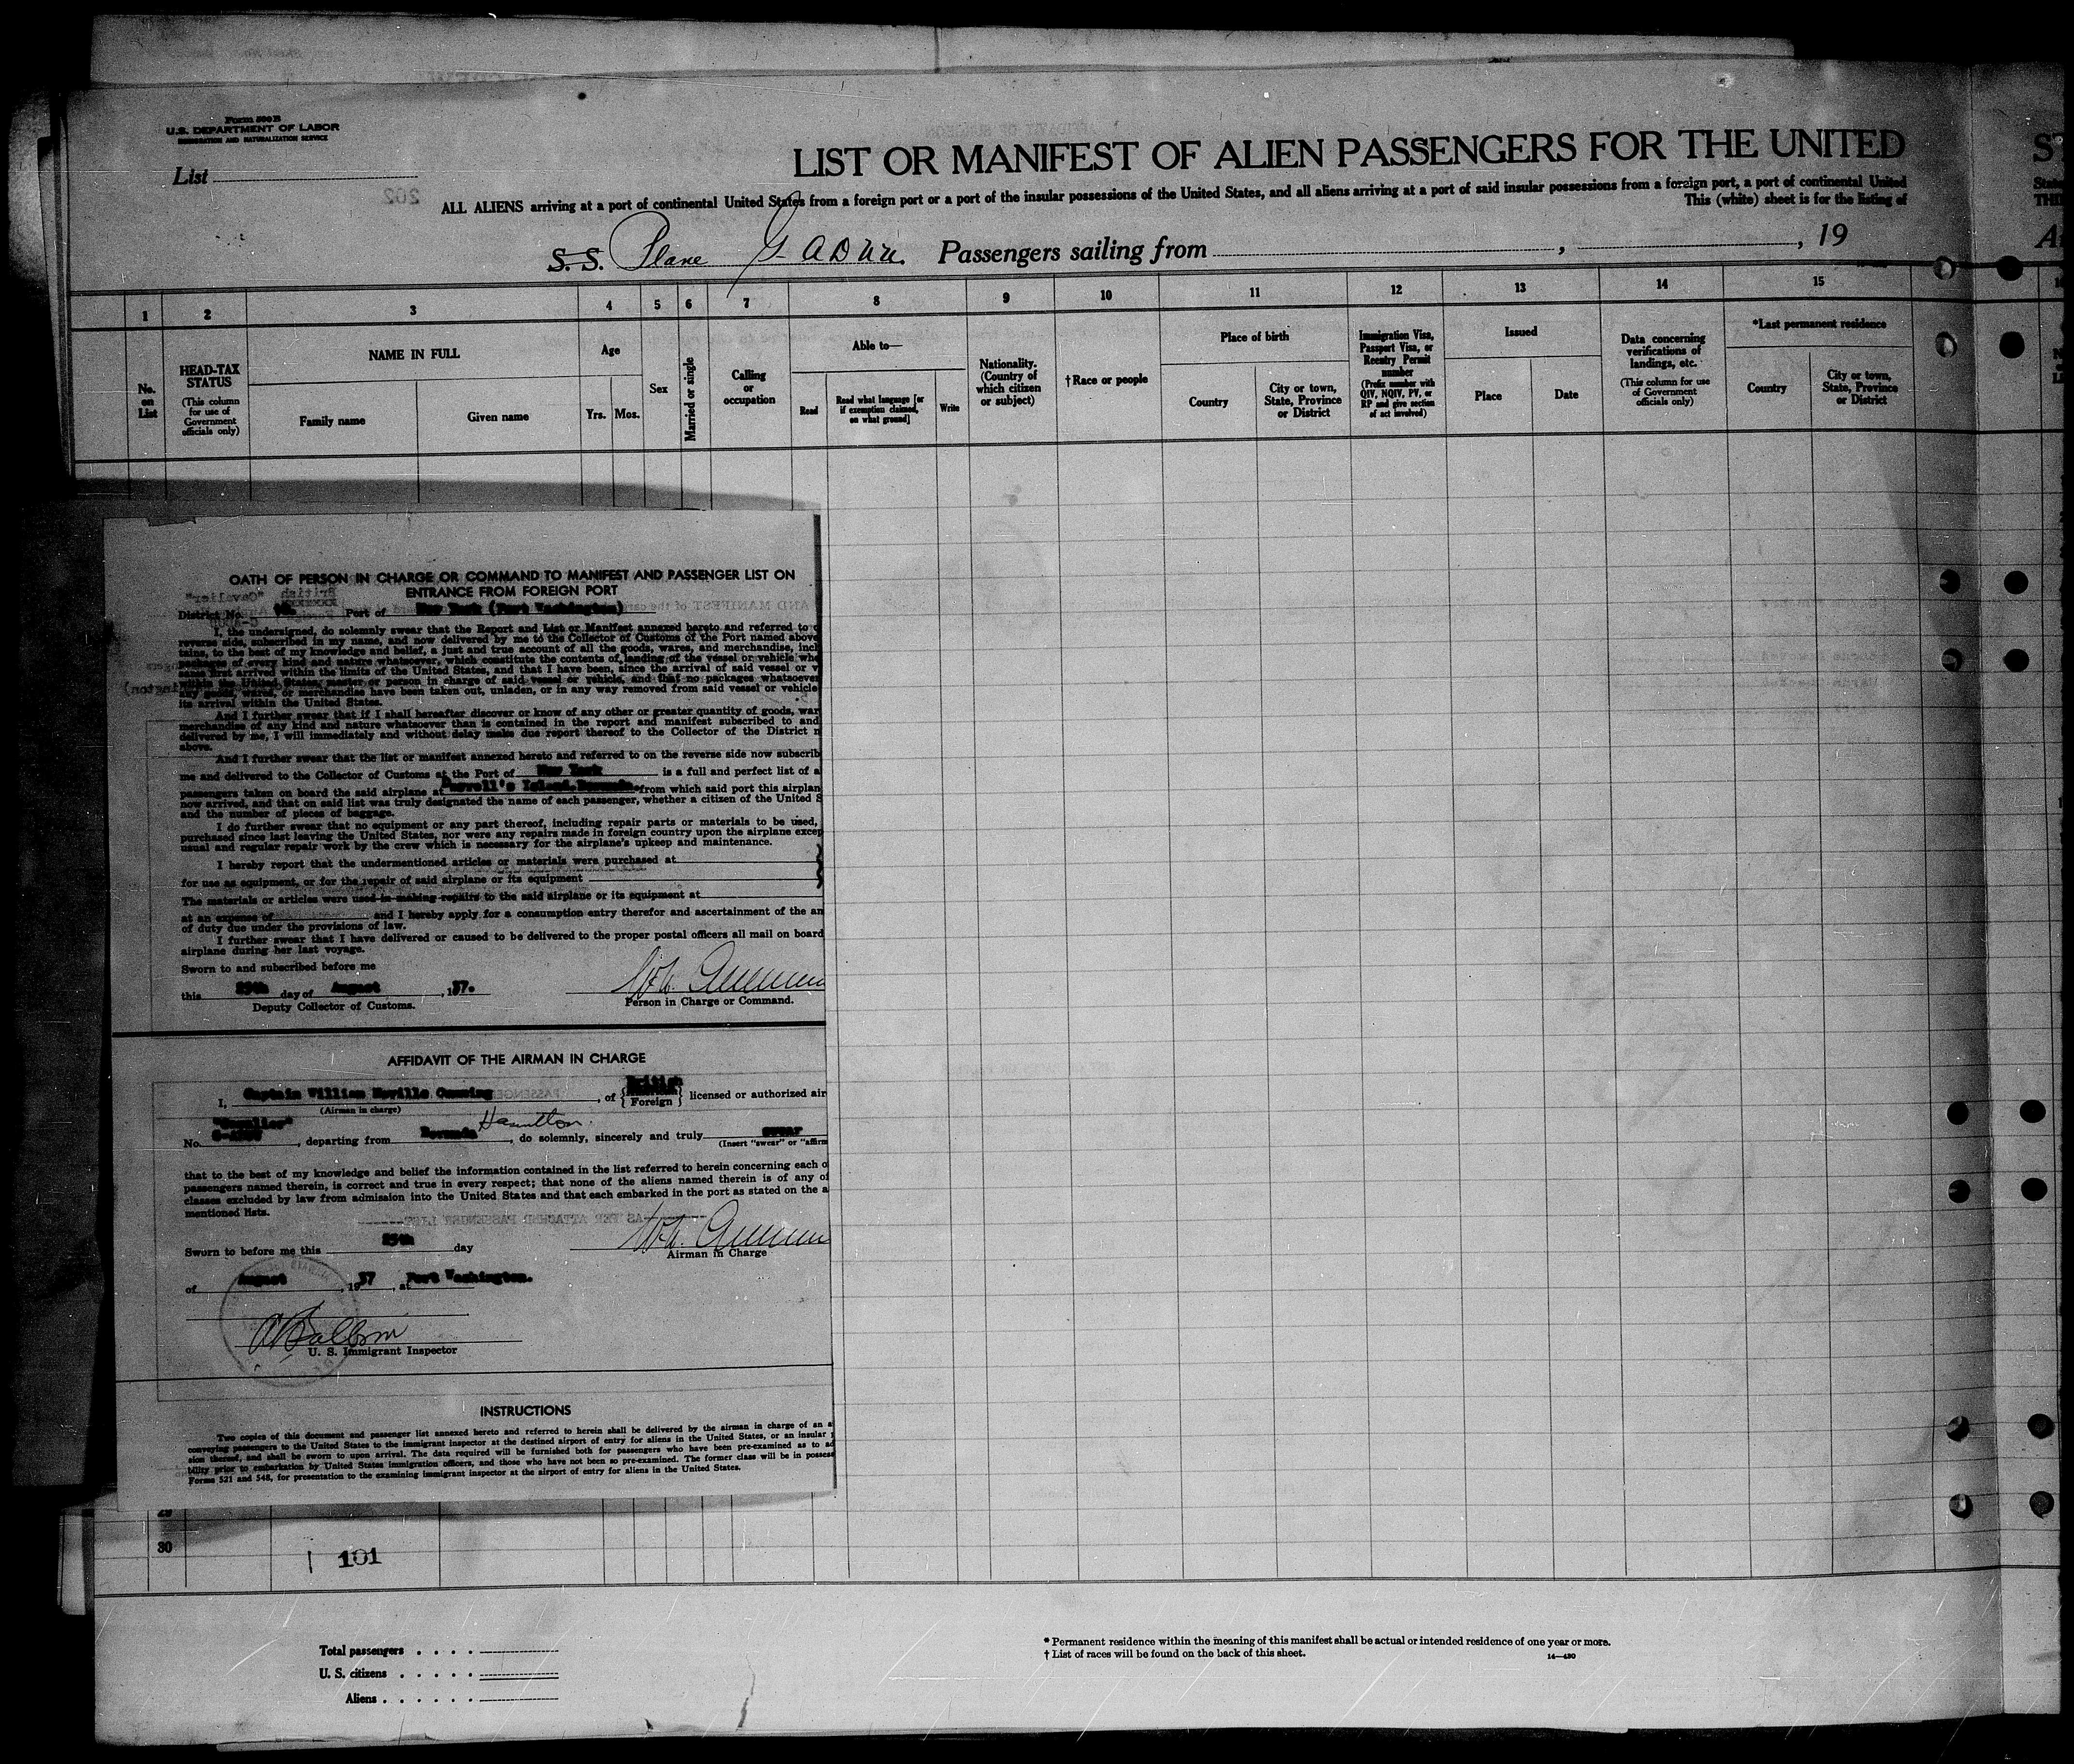 Form 500 B
U.S. DEPARTMENT OF LABOR
IMMIGRATION AND NATURALIZATION SERVICE
List
202
LIST OR MANIFEST OF ALIEN PASSENGERS FOR THE UNITED
ALL ALIENS arriving at a port of continental United States from a foreign port or a port of the insular possessions of the United States, and all aliens arriving at a port of said insular possessions from a foreign port, a port of continental United
This (white) sheet is for the listing of
S. S. Plane G-ADUU. Passengers sailing from , , 19
1 2 3 4 5 6 7 8 9 10 11 12 13 14 15
No. on List
HEAD-TAX STATUS
(This column for use of Government officials only)
NAME IN FULL
Family name Given name
Age
Yrs. Mos.
Sex
Married or single
Calling or occupation
Able to—
Read
Read what language [or if exemption claimed, on what ground]
Write
Nationality. (Country of which citizen or subject)
†Race or people
Place of birth
Country
City or town, State, Province or District
Immigration Visa, Passport Visa, or Reentry Permit number
(Prefix number with QIV, NQIV, PV, or RP and give section of act involved)
Issued
Place Date
Data concerning verifications of landings, etc.
(This column for use of Government officials only)
*Last permanent residence
Country
City or town, State, Province or District
OATH OF PERSON IN CHARGE OR COMMAND TO MANIFEST AND PASSENGER LIST ON
ENTRANCE FROM FOREIGN PORT
District No. Port of New York (Port Washington)
I, the undersigned, do solemnly swear that the Report and List or Manifest annexed hereto and referred to
reverse side, subscribed in my name, and now delivered by me to the Collector of Customs of the Port named above
tains, to the best of my knowledge and belief, a just and true account of all the goods, wares, and merchandise, incl
packages of every kind and nature whatsoever, which constitute the contents of landing of the vessel or vehicle whe
same first arrived within the limits of the United States, and that I have been, since the arrival of said vessel or v
within the United States, master or person in charge of said vessel or vehicle, and that no packages whatsoever
any goods, wares, or merchandise have been taken out, unladen, or in any way removed from said vessel or vehicle
its arrival within the United States.
And I further swear that if I shall hereafter discover or know of any other or greater quantity of goods, war
merchandise of any kind and nature whatsoever than is contained in the report and manifest subscribed to and
delivered by me, I will immediately and without delay make due report thereof to the Collector of the District n
above.
And I further swear that the list or manifest annexed hereto and referred to on the reverse side now subscrib
me and delivered to the Collector of Customs at the Port of New York is a full and perfect list of a
passengers taken on board the said airplane at Darrell's Island, Bermuda. from which said port this airplan
now arrived, and that on said list was truly designated the name of each passenger, whether a citizen of the United S
and the number of pieces of baggage.
I do further swear that no equipment or any part thereof, including repair parts or materials to be used,
purchased since last leaving the United States, nor were any repairs made in foreign country upon the airplane excep
usual and regular repair work by the crew which is necessary for the airplane's upkeep and maintenance.
I hereby report that the undermentioned articles or materials were purchased at
for use as equipment, or for the repair of said airplane or its equipment
The materials or articles were used in making repairs to the said airplane or its equipment at
at an expense of and I hereby apply for a consumption entry therefor and ascertainment of the am
of duty due under the provisions of law.
I further swear that I have delivered or caused to be delivered to the proper postal officers all mail on board
airplane during her last voyage.
Sworn to and subscribed before me
this 25th day of August , 137.
Deputy Collector of Customs.
Person in Charge or Command.
AFFIDAVIT OF THE AIRMAN IN CHARGE
I, Captain William Neville Cumming , of { British Foreign } licensed or authorized air
(Airman in charge)
"Cavalier"
No. G-ADUU , departing from Bermuda Hamilton. , do solemnly, sincerely and truly swear
(Insert "swear" or "affirm
that to the best of my knowledge and belief the information contained in the list referred to herein concerning each o
passengers named therein, is correct and true in every respect; that none of the aliens named therein is of any of
classes excluded by law from admission into the United States and that each embarked in the port as stated on the a
mentioned lists.
Sworn to before me this 25th day
Airman in Charge
of August , 1937 , at Port Washington.
U. S. Immigrant Inspector
INSTRUCTIONS
Two copies of this document and passenger list annexed hereto and referred to herein shall be delivered by the airman in charge of an a
conveying passengers to the United States to the immigrant inspector at the destined airport of entry for aliens in the United States, or an insular
sion thereof, and shall be sworn to upon arrival. The data required will be furnished both for passengers who have been pre-examined as to ad
bility prior to embarkation by United States immigration officers, and those who have not been so pre-examined. The former class will be in possess
Forms 521 and 548, for presentation to the examining immigrant inspector at the airport of entry for aliens in the United States.
29
30
101
Total passengers
U. S. citizens
Aliens
* Permanent residence within the meaning of this manifest shall be actual or intended residence of one year or more.
† List of races will be found on the back of this sheet.
14—430